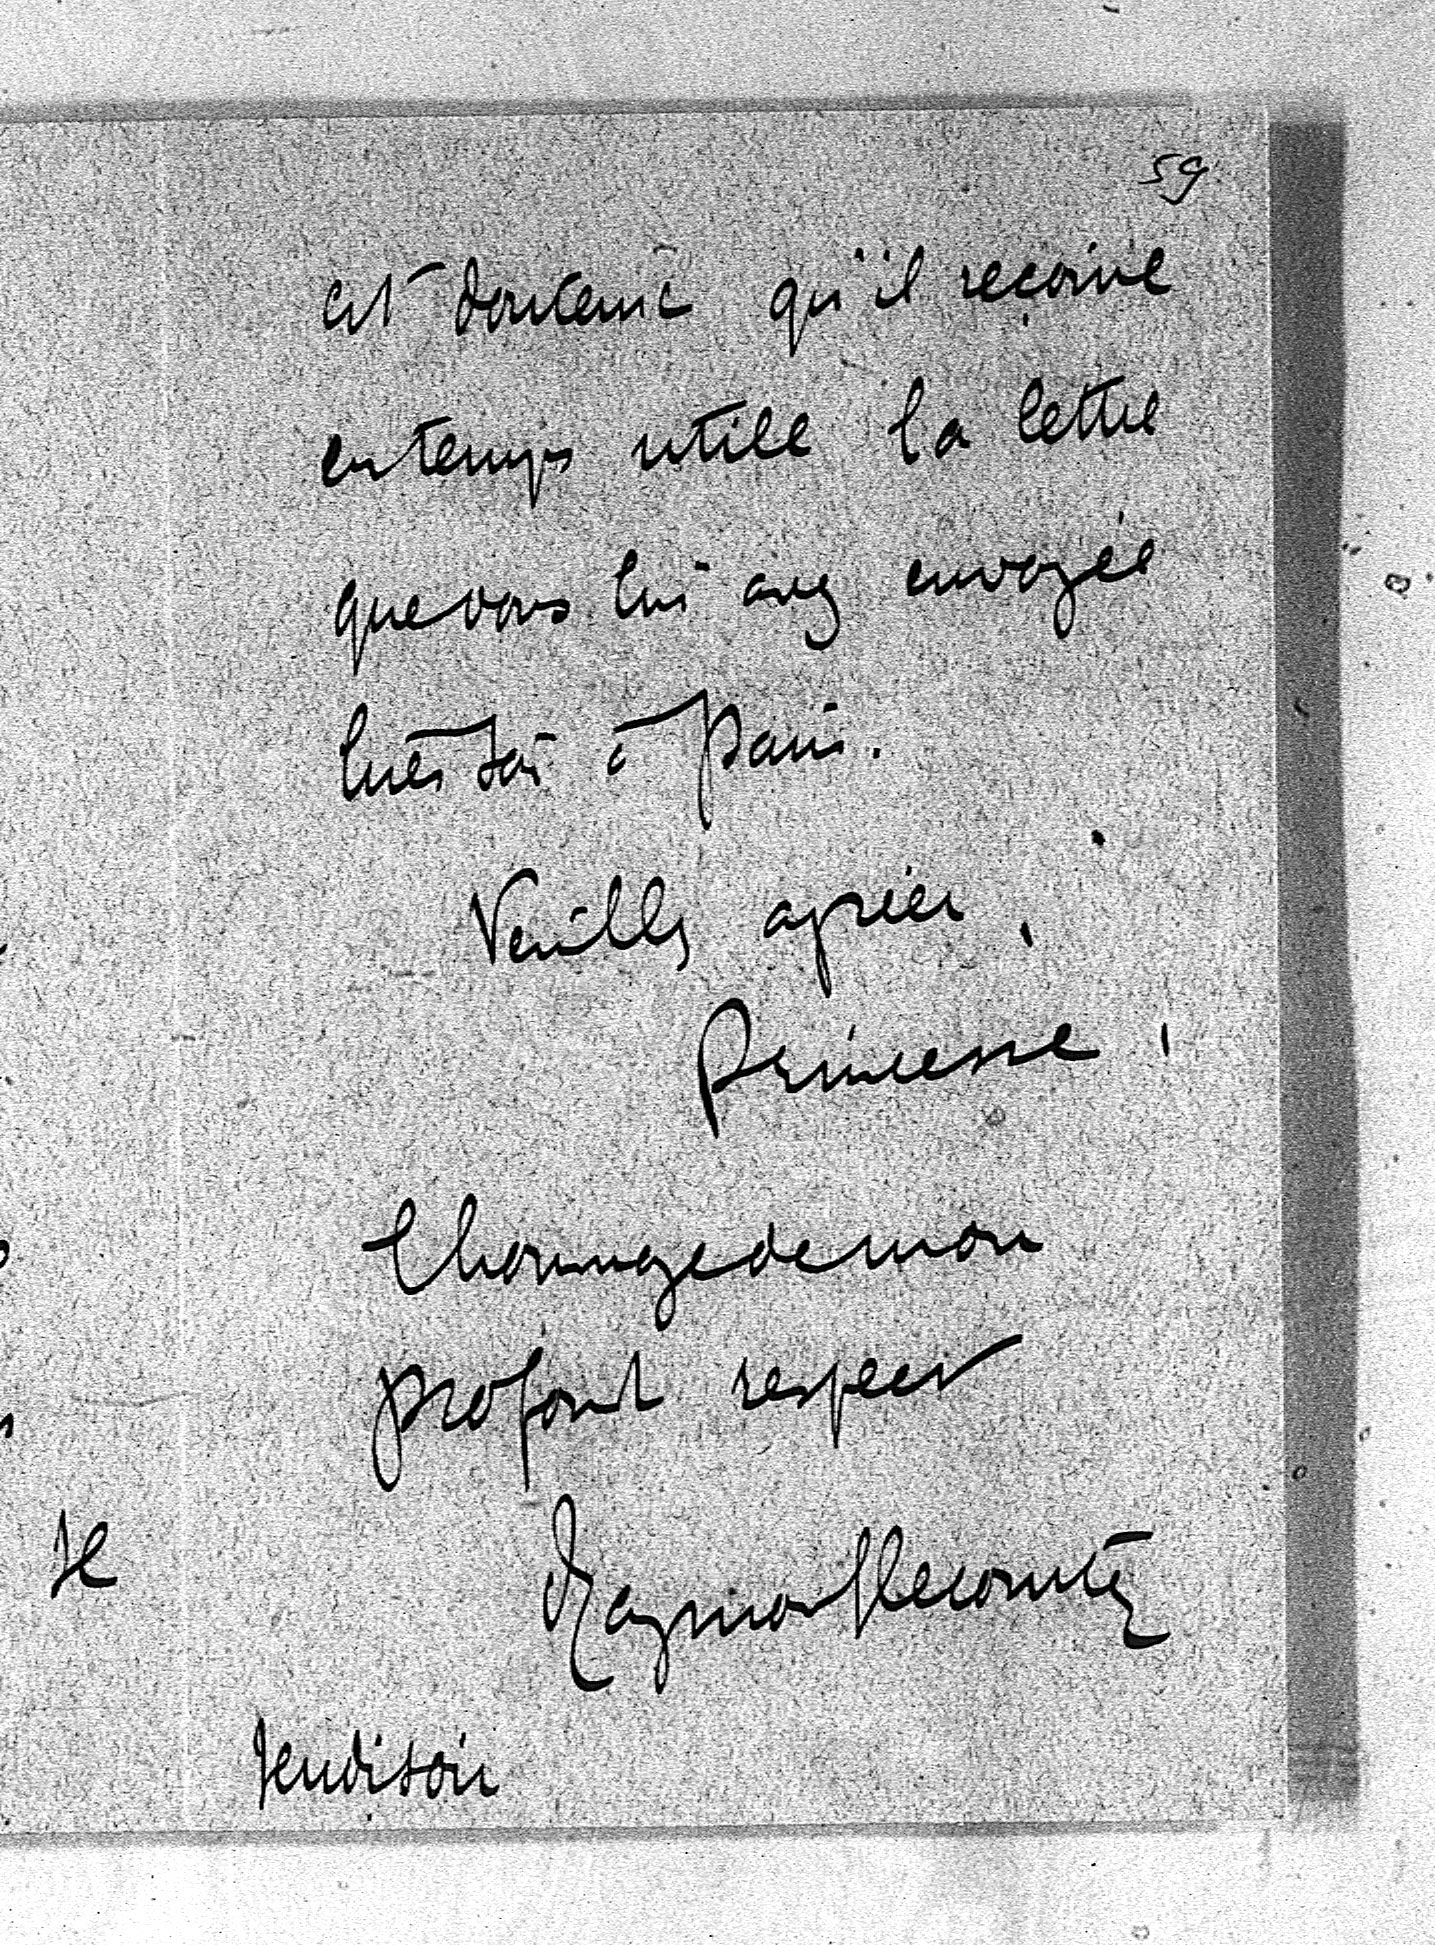 59
est douteux qu'il reçoive
en temps utile la lettre
que vous lui avez envoyée
hier soir à Paris.
Veuillez agréer,
Princesse,
l'hommage de mon
profond respect
Raymond Lecomte
Je
Jeudi soir